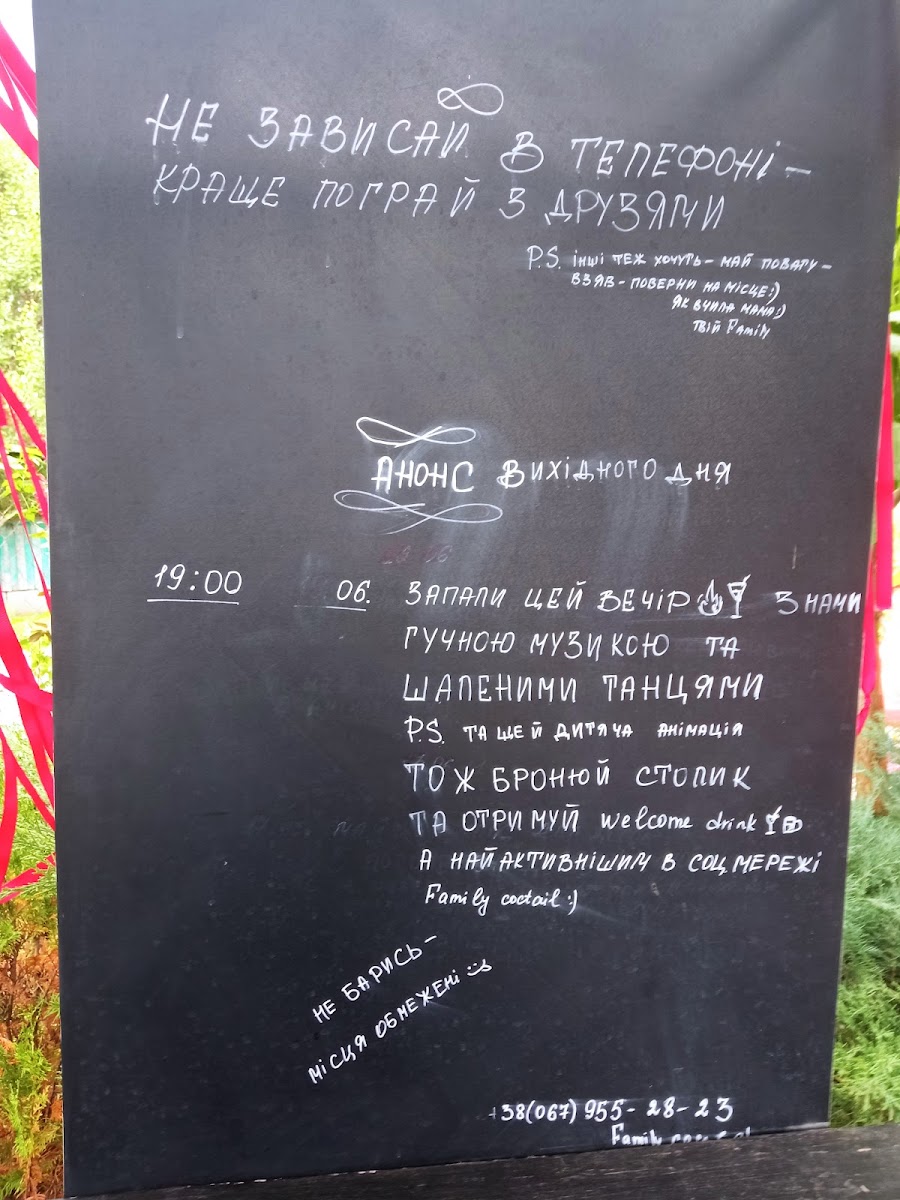 НЕ ЗАВИСАЙ В ТЕЛЕФОНІ –
КРАЩЕ ПОГРАЙ З ДРУЗЯМИ
P.S. ІНШІ ТЕЖ ХОЧУТЬ – МАЙ ПОВАГУ –
ВЗЯВ – ПОВЕРНИ НА МІСЦЕ:)
ЯК ВЧИЛА МАМА:)
ТВІЙ Family
АНОНС ВИХІДНОГО ДНЯ
19:00 06. ЗАПАЛИ ЦЕЙ ВЕЧІР З НАМИ
ГУЧНОЮ МУЗИКОЮ ТА
ШАЛЕНИМИ ТАНЦЯМИ
P.S. ТА ЩЕ Й ДИТЯЧА АНІМАЦІЯ
ТОЖ БРОНЮЙ СТОЛИК
ТА ОТРИМУЙ welcome drink
А НАЙАКТИВНІШИМ В СОЦ МЕРЕЖІ
Family coctail :)
НЕ БАРИСЬ –
МІСЦЯ ОБМЕЖЕНІ
+38(067) 955-28-23
Family